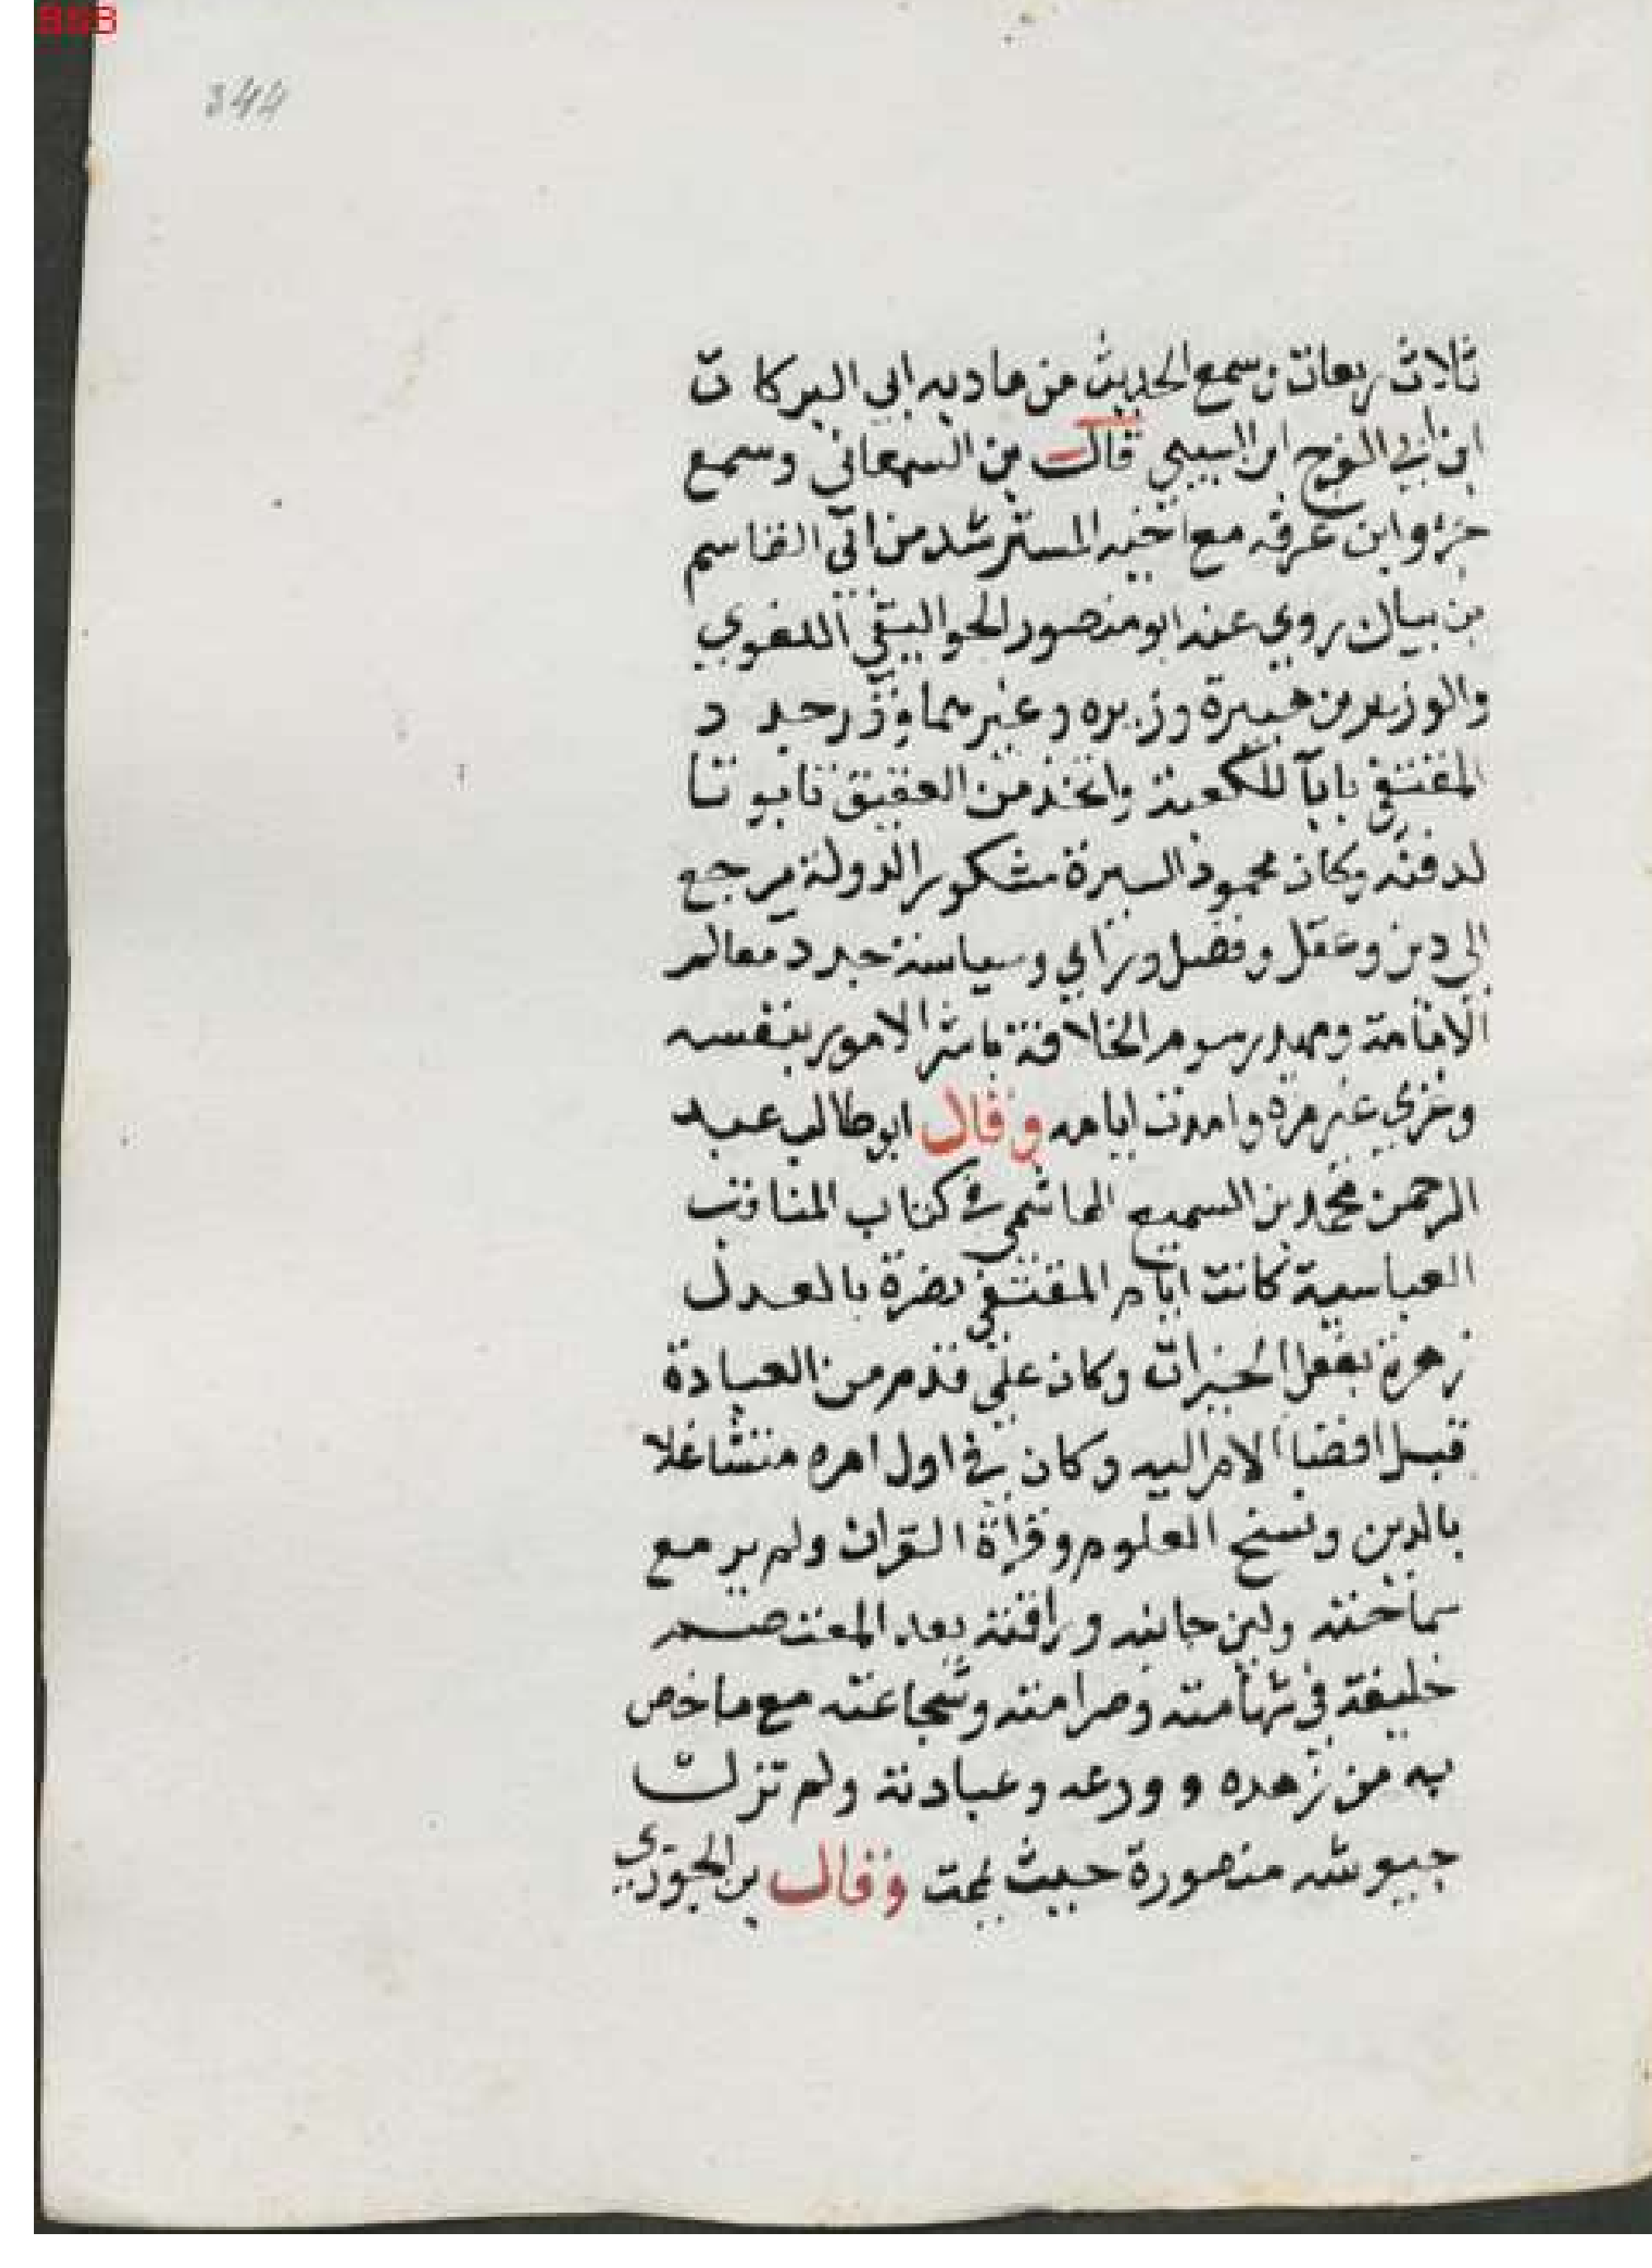 344
ثلاث ربعات وسمع الحديث من مادبه ابي البركات
ابن ابي الفرج ابن السيبي قال بن السمعاني وسمع
جزو ابن عرفه مع اخيه المسترشد من ابي القاسم
بن بيان روي عنه ابو منصور الجواليقي اللغوي
والوزير بن هبيرة وزيره وغيرهما وقد جدد
المقتفي بابا للكعبة واتخذ من العقيق تابوتا
لدفنه وكان محمود السيرة مشكور الدولة يرجع
الي دين وعقل وفضل وراي وسياسة جدد معالم
الامامة ومهد رسوم الخلافة باشر الامور بنفسه
وغزي غير مرة وامدت ايامه وقال ابو طالب عبد
الرحمن محمد بن السميع الهاشمي في كتاب المناقب
العباسية كانت ايام المقتفي نضرة بالعدل
زهرة بفعل الخيرات وكان علي قدم من العبادة
قبل افضا الامر اليه وكان في اول امره متشاغلا
بالدين ونسخ العلوم وقراة القران ولم ير مع
سماحته ولين جانبه ورافته بعد المعتصم
خليفة في شهامته وصرامته وشجاعته مع ماخص
به من زهده وورعه وعبادته ولم تزل
جيوشه منصورة حيث يمت وقال بن الجوزي